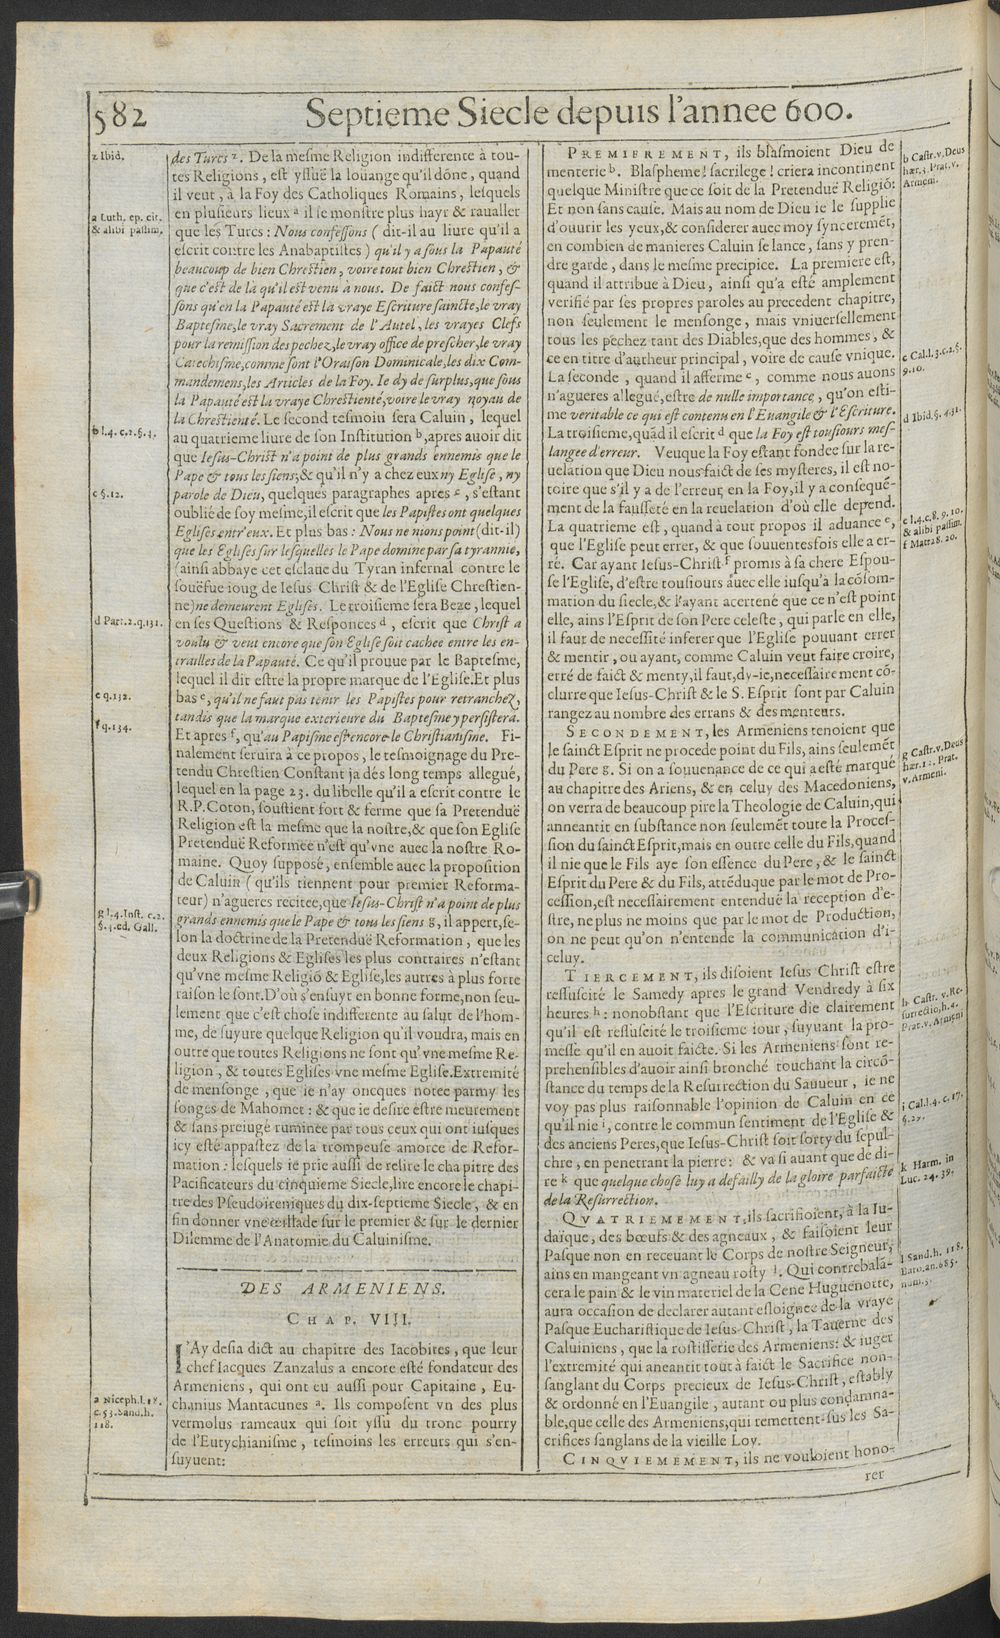 582
Septieme Siecle depuis l'annee 600.
z Ibid.
a Luth. ep. cit.
& alibi passim.
b l.4. c.2.§.4.
c §.12.
d Part.2.q.131.
e q.132.
f q.134.
g l.4.Inst. c.2.
§.4.ed. Gall.
a Niceph.l.18.
c.53.Sand.h.
118.
des Turcs z. De la mesme Religion indifferente à tou-
tes Religions, est yssuë la loüange qu'il dóne, quand
il veut, à la Foy des Catholiques Romains, lesquels
en plusieurs lieux a il se monstre plus hayr & raualler
que les Turcs : Nous confessons ( dit-il au liure qu'il a
escrit contre les Anabaptistes ) qu'il y a sous la Papauté
beaucoup de bien Chrestien, voire tout bien Chrestien, &
que c'est de là qu'il est venu à nous. De faict nous confes-
sons qu'en la Papauté est la vraye Escriture saincte, le vray
Baptesme, le vray Sacrement de l'Autel, les vrayes Clefs
pour la remission des pechez, le vray office de prescher, le vray
Catechisme, comme sont l'Oraison Dominicale, les dix Com-
mandemens, les Articles de la Foy. Ie dy de surplus, que sous
la Papauté est la vraye Chrestienté, voire le vray noyau de
la Chrestienté. Le second tesmoin sera Caluin, lequel
au quatrieme liure de son Institution b, apres auoir dit
que Iesus-Christ n'a point de plus grands ennemis que le
Pape & tous les siens, & qu'il n'y a chez eux ny Eglise, ny
parole de Dieu, quelques paragraphes apres c, s'estant
oublié de soy mesme, il escrit que les Papistes ont quelques
Eglises entr'eux. Et plus bas : Nous ne nions point (dit-il)
que les Eglises sur lesquelles le Pape domine par sa tyrannie,
(ainsi abbaye cet esclaue du Tyran infernal contre le
souëfue ioug de Iesus Christ & de l'Eglise Chrestien-
ne) ne demeurent Eglises. Le troisieme sera Beze, lequel
en ses Questions & Responces d, escrit que Christ a
voulu & veut encore que son Eglise soit cachee entre les en-
trailles de la Papauté. Ce qu'il prouue par le Baptesme,
lequel il dit estre la propre marque de l'Eglise. Et plus
bas e, qu'il ne faut pas tenir les Papistes pour retranchez,
tandis que la marque exterieure du Baptesme y persistera.
Et apres f, qu'au Papisme est encore le Christianisme. Fi-
nalement seruira à ce propos, le tesmoignage du Pre-
tendu Chrestien Constant ja dés long temps allegué,
lequel en la page 23. du libelle qu'il a escrit contre le
R.P.Coton, soustient fort & ferme que sa Pretenduë
Religion est la mesme que la nostre, & que son Eglise
Pretenduë Reformee n'est qu'vne auec la nostre Ro-
maine. Quoy supposé, ensemble auec la proposition
de Caluin ( qu'ils tiennent pour premier Reforma-
teur) n'agueres recitee, que Iesus-Christ n'a point de plus
grands ennemis que le Pape & tous les siens g, il appert, se-
lon la doctrine de la Pretenduë Reformation, que les
deux Religions & Eglises les plus contraires n'estant
qu'vne mesme Religió & Eglise, les autres à plus forte
raison le sont. D'où s'ensuyt en bonne forme, non seu-
lement que c'est chose indifferente au salut de l'hom-
me, de suyure quelque Religion qu'il voudra, mais en
outre que toutes Religions ne sont qu'vne mesme Re-
ligion, & toutes Eglises vne mesme Eglise. Extremité
de mensonge, que ie n'ay oncques notee parmy les
songes de Mahomet : & que ie desire estre meurement
& sans preiugé ruminee par tous ceux qui ont iusques
icy esté appastez de la trompeuse amorce de Refor-
mation : lesquels ie prie aussi de relire le chapitre des
Pacificateurs du cinquieme Siecle, lire encore le chapi-
tre des Pseudoireniques du dix-septieme Siecle, & en
fin donner vne œillade sur le premier & sur le dernier
Dilemme de l'Anatomie du Caluinisme.
DES ARMENIENS.
CHAP. VIII.
I'Ay desia dict au chapitre des Iacobites, que leur
chef Iacques Zanzalus a encore esté fondateur des
Armeniens, qui ont eu aussi pour Capitaine, Eu-
chanius Mantacunes a. Ils composent vn des plus
vermolus rameaux qui soit yssu du tronc pourry
de l'Eutychianisme, tesmoins les erreurs qui s'en-
suyuent:
PREMIEREMENT, ils blasmoient Dieu de
menterie b. Blaspheme! sacrilege ! criera incontinent
quelque Ministre que ce soit de la Pretenduë Religió:
Et non sans cause. Mais au nom de Dieu ie le supplie
d'ouurir les yeux, & considerer auec moy syncerемēt,
en combien de manieres Caluin se lance, sans y pren-
dre garde, dans le mesme precipice. La premiere est,
quand il attribue à Dieu, ainsi qu'a esté amplement
verifié par ses propres paroles au precedent chapitre,
non seulement le mensonge, mais vniuersellement
tous les pechez tant des Diables, que des hommes, &
ce en titre d'autheur principal, voire de cause vnique.
La seconde, quand il afferme c, comme nous auons
n'agueres allegué, estre de nulle importance, qu'on esti-
me veritable ce qui est contenu en l'Euangile & l'Escriture.
La troisieme, quād il escrit d que la Foy est tousiours mes-
langee d'erreur. Veu que la Foy estant fondee sur la re-
uelation que Dieu nous faict de ses mysteres, il est no-
toire que s'il y a de l'erreur en la Foy, il y a consequē-
ment de la fausseté en la reuelation d'où elle depend.
La quatrieme est, quand à tout propos il aduance e,
que l'Eglise peut errer, & que souuentesfois elle a er-
ré. Car ayant Iesus-Christ f promis à sa chere Espou-
se l'Eglise, d'estre tousiours auec elle iusqu'à la cósom-
mation du siecle, & l'ayant acertené que ce n'est point
elle, ains l'Esprit de son Pere celeste, qui parle en elle,
il faut de necessité inferer que l'Eglise pouuant errer
& mentir, ou ayant, comme Caluin veut faire croire,
erré de faict & menty, il faut, dy-ie, necessairement có-
clurre que Iesus-Christ & le S. Esprit sont par Caluin
rangez au nombre des errans & des menteurs.
SECONDEMENT, les Armeniens tenoient que
le sainct Esprit ne procede point du Fils, ains seulemēt
du Pere g. Si on a souuenance de ce qui a esté marqué
au chapitre des Ariens, & en celuy des Macedoniens,
on verra de beaucoup pire la Theologie de Caluin, qui
aneantit en substance non seulemēt toute la Proces-
sion du sainct Esprit, mais en outre celle du Fils, quand
il nie que le Fils aye son essence du Pere, & le sainct
Esprit du Pere & du Fils, attēdu que par le mot de Pro-
cession, est necessairement entenduë la reception d'e-
stre, ne plus ne moins que par le mot de Production,
on ne peut qu'on n'entende la communication d'i-
celuy.
TIERCEMENT, ils disoient Iesus Christ estre
ressuscité le Samedy apres le grand Vendredy à six
heures h : nonobstant que l'Escriture die clairement
qu'il est ressuscité le troisieme iour, suyuant la pro-
messe qu'il en auoit faicte. Si les Armeniens sont re-
prehensibles d'auoir ainsi bronché touchant la circó-
stance du temps de la Resurrection du Sauueur, ie ne
voy pas plus raisonnable l'opinion de Caluin en ce
qu'il nie i, contre le commun sentiment de l'Eglise &
des anciens Peres, que Iesus-Christ soit sorty du sepul-
chre, en penetrant la pierre: & va si auant que de di-
re k que quelque chose luy a defailly de la gloire parfaicte
de la Resurrection.
QVATRIEMEMENT, ils sacrifioient, à la Iu-
daïque, des bœufs & des agneaux, & faisoient leur
Pasque non en receuant le Corps de nostre Seigneur,
ains en mangeant vn agneau rosty l. Qui contrebalā-
cera le pain & le vin materiel de la Cene Huguenotte,
aura occasion de declarer autant esloignee de la vraye
Pasque Eucharistique de Iesus-Christ, la Tauerne des
Caluiniens, que la rostisserie des Armeniens: & iuger
l'extremité qui aneantit tout à faict le Sacrifice non-
sanglant du Corps precieux de Iesus-Christ, estably
& ordonné en l'Euangile, autant ou plus condamna-
ble, que celle des Armeniens, qui remettent sus les Sa-
crifices sanglans de la vieille Loy.
CINQVIEMEMENT, ils ne vouloient hono-
rer
b Castr.v.Deus
hær.3. Prat.v.
Armeni.
c Cal.l.3.c.2.§.
9.10.
d Ibid.§. 4.31.
e l.4.c.8. 9. 10.
& alibi passim.
f Matt 28. 20.
g Castr.v.Deus
hær.12. Prat.
v.Armeni.
h Castr. v.Re-
surrectio,h.4.
Prat.v.Armeni
i Cal.l.4. c.17.
§.29.
k Harm. in
Luc. 24. 39.
l Sand.h. 118.
Baro.an.685.
num.5.